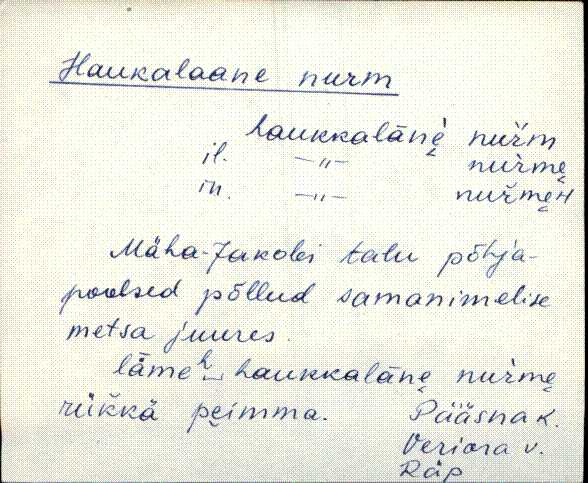 Haukalaane nurm
haukkalānę̀ nuŕm
il. —„— nuŕmę
in. —„— nuŕmęн
Mäha-Jakobi talu põhja-
poolsed põllud samanimelise
metsa juures.
läme^h‿ haukkalānę nuŕmę
rükkä pęimma. Pääsna k.
Veriora v.
Räp